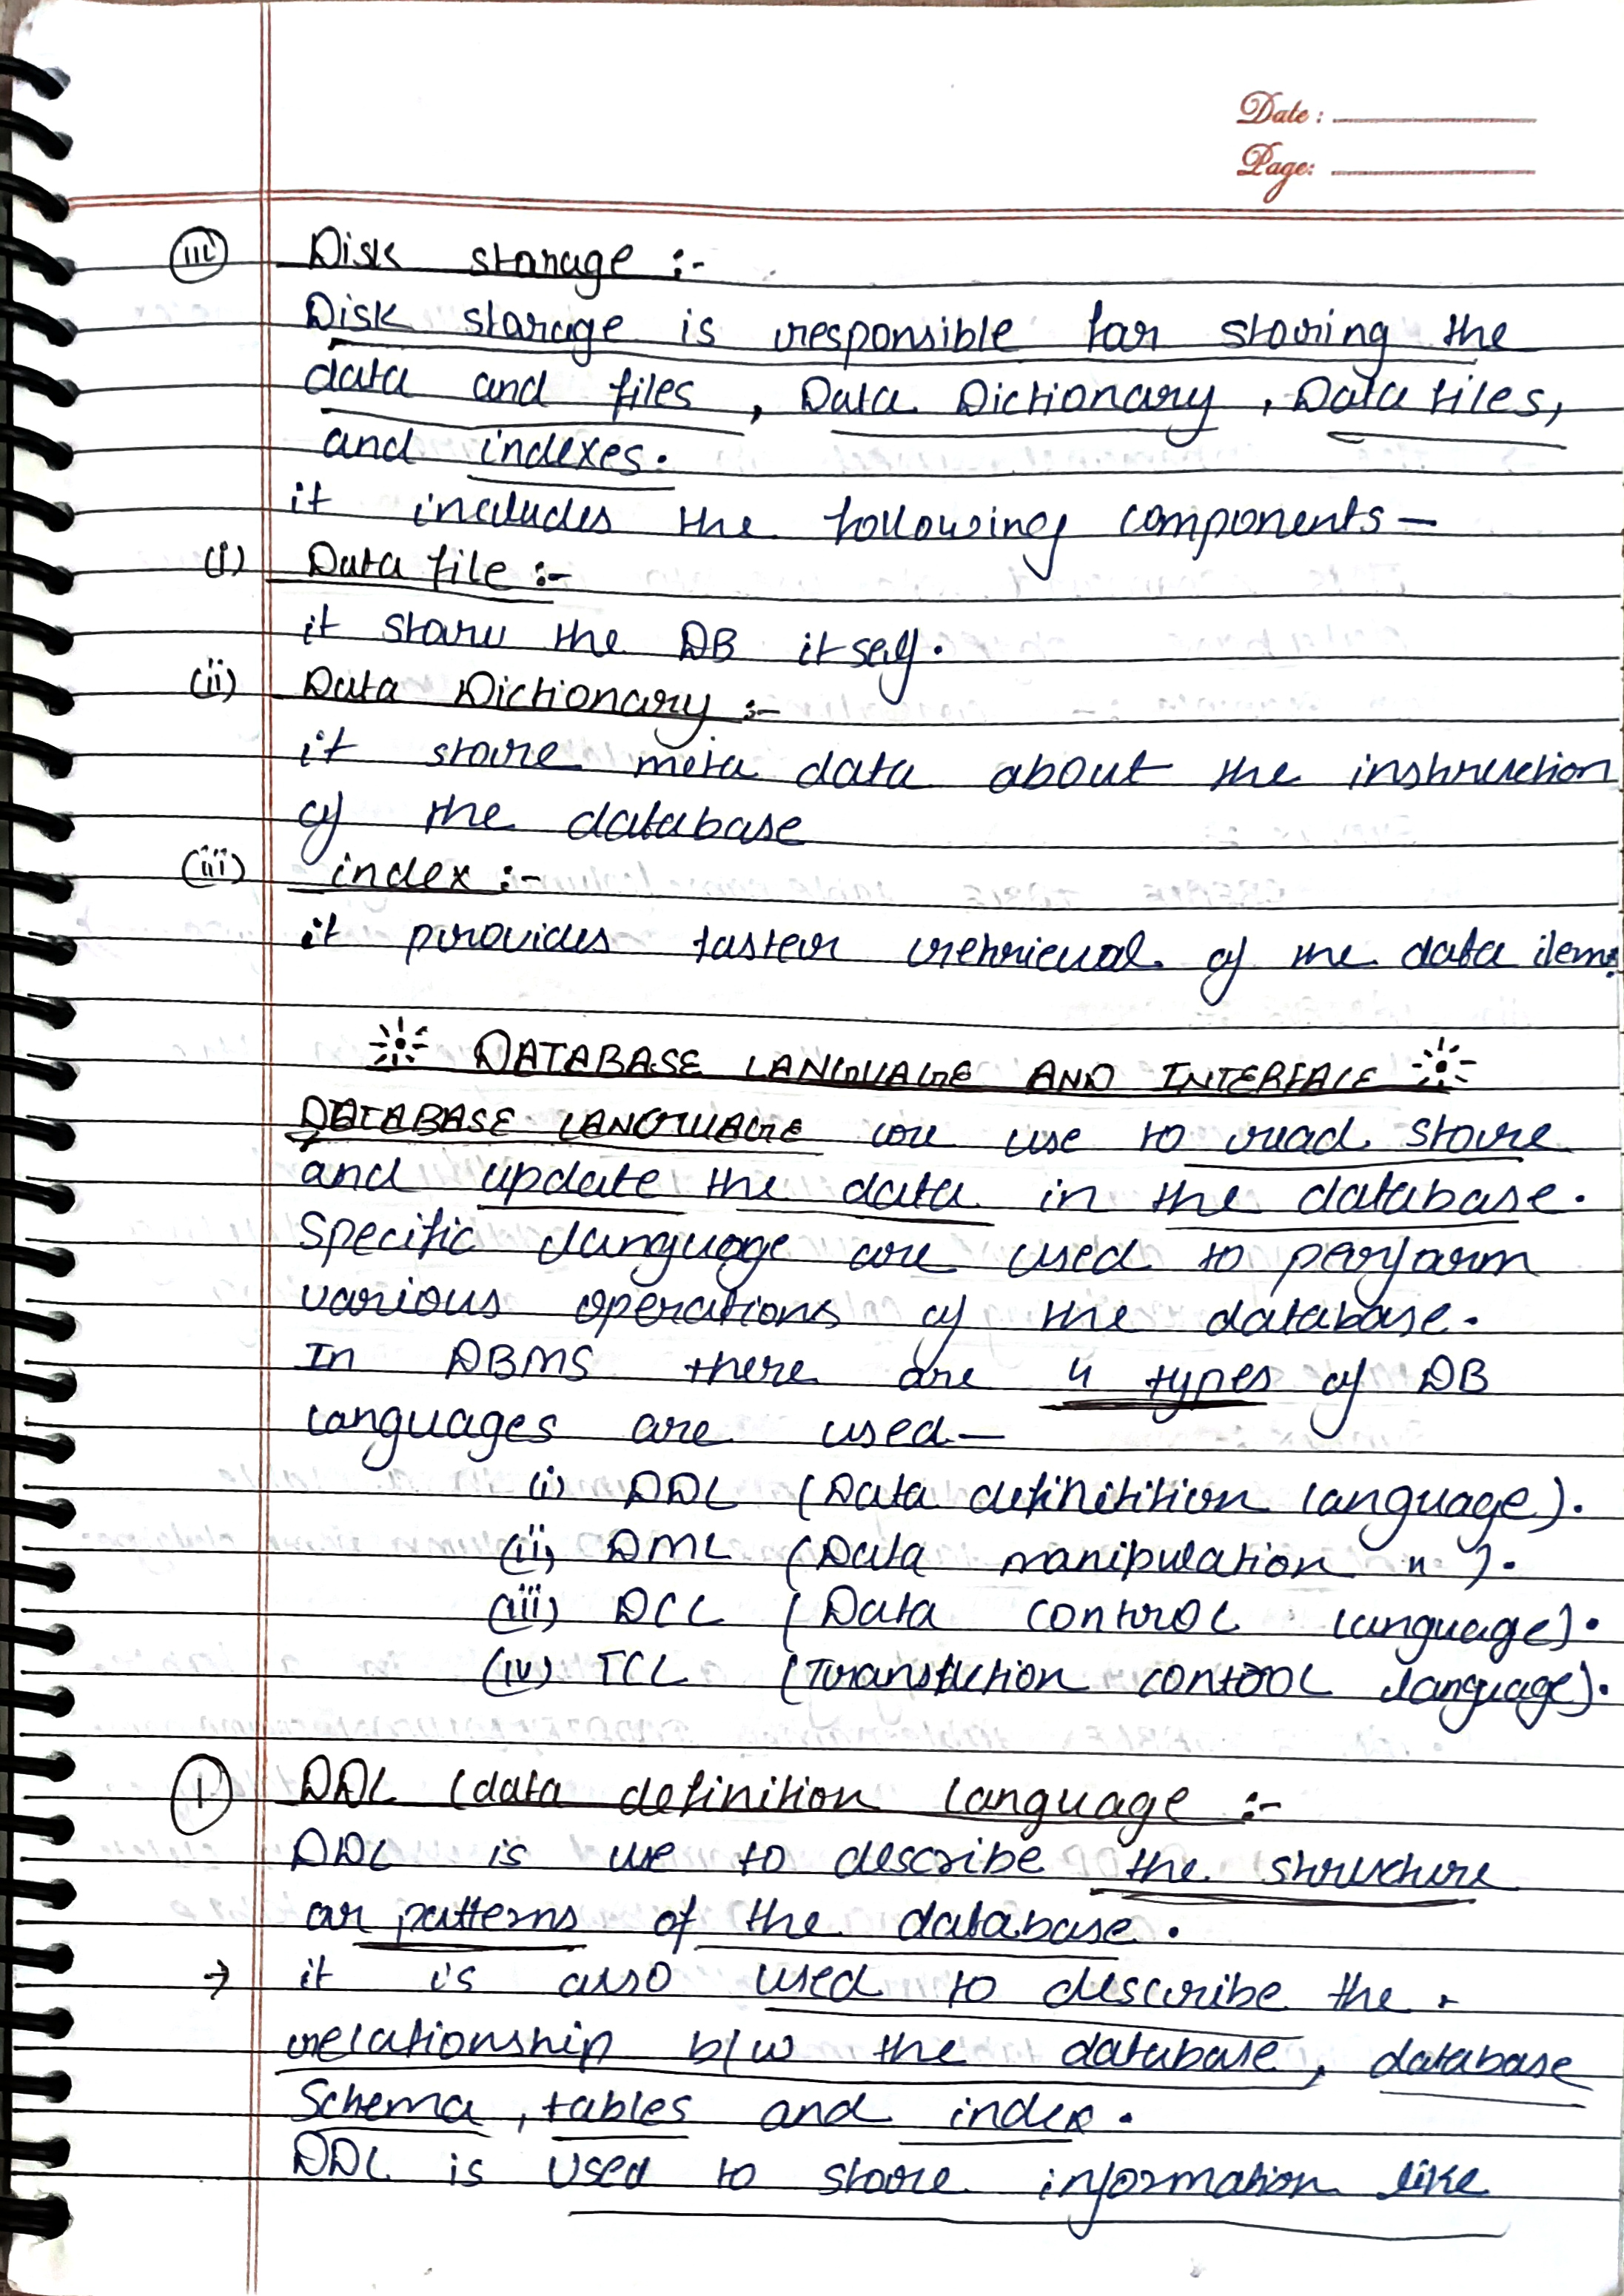 Date :
Page:
(iii) Disk storage :-
Disk storage is responsible for storing the
data and files , Data Dictionary , Data files,
and indexes.
it includes the following components —
(i) Data file :-
it store the DB itself.
(ii) Data Dictionary :-
it store meta data about the instruction
of the database
(iii) index :-
it provides faster retrieval of the data items
DATABASE LANGUAGE AND INTERFACE
DATABASE LANGUAGE are use to read store
and update the data in the database.
Specific language are used to perform
various operations of the database.
In DBMS there are 4 types of DB
languages are used—
(i) DDL (Data definitition language).
(ii) DML (Data manipulation " ).
(iii) DCL (Data control language).
(iv) TCL (Transaction control language).
(1) DDL (data definition language :-
DDL is use to describe the structure
or patterns of the database.
→ it is also used to describe the
relationship b/w the database, database
Schema, tables and index.
DDL is used to store information like